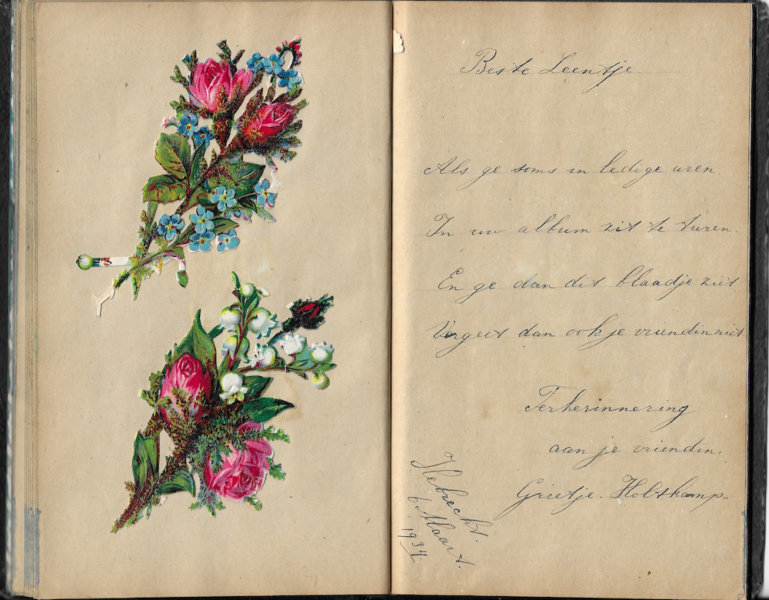 Beste Leentje
Als ge soms in ledige uren.
In uw album zit te turen.
En ge dan dit blaadje ziet
Vergeet dan ook je vriendin niet
Ter herinnering
aan je vriendin.
Grietje. Holtkamp.
6 Maart.
1934